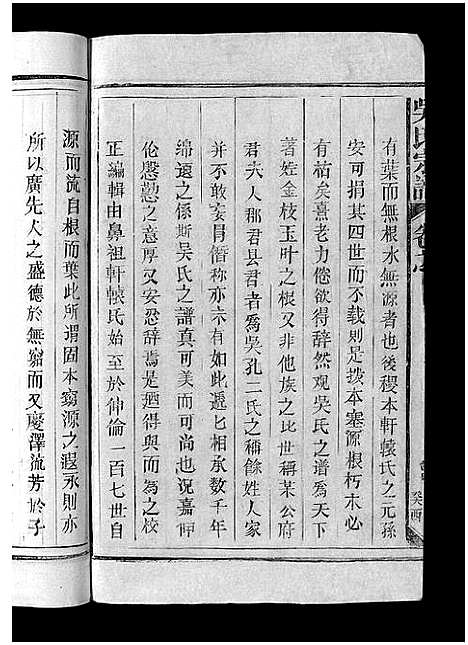 吳氏宗譜
卷之
癸酉
有葉而無根水無源者也後稷本軒轅氏之元孫
安可捐其四世而不载則是拨本塞源根朽木必
有枯矣熹老力倦欲得辞然观吴氏之谱爲天下
著姓金枝玉叶之根又非他族之比世稱某公府
君夫人郡君县君者爲吴孔二氏之稱餘姓人家
并不敢妄冐僭称亦有如此遞匕相承数千年
绵远之係斯吴氏之谱真可美而可尚也况嘉仲
伦懇懃之意厚又安忍辞焉是廼得與而為之校
正編輯由鼻祖軒轅氏始至於仲倫一百七世自
源而流自根而葉此所谓固本窮源之遐永則亦
所以廣先人之盛德於無窮而又慶澤流芳於子